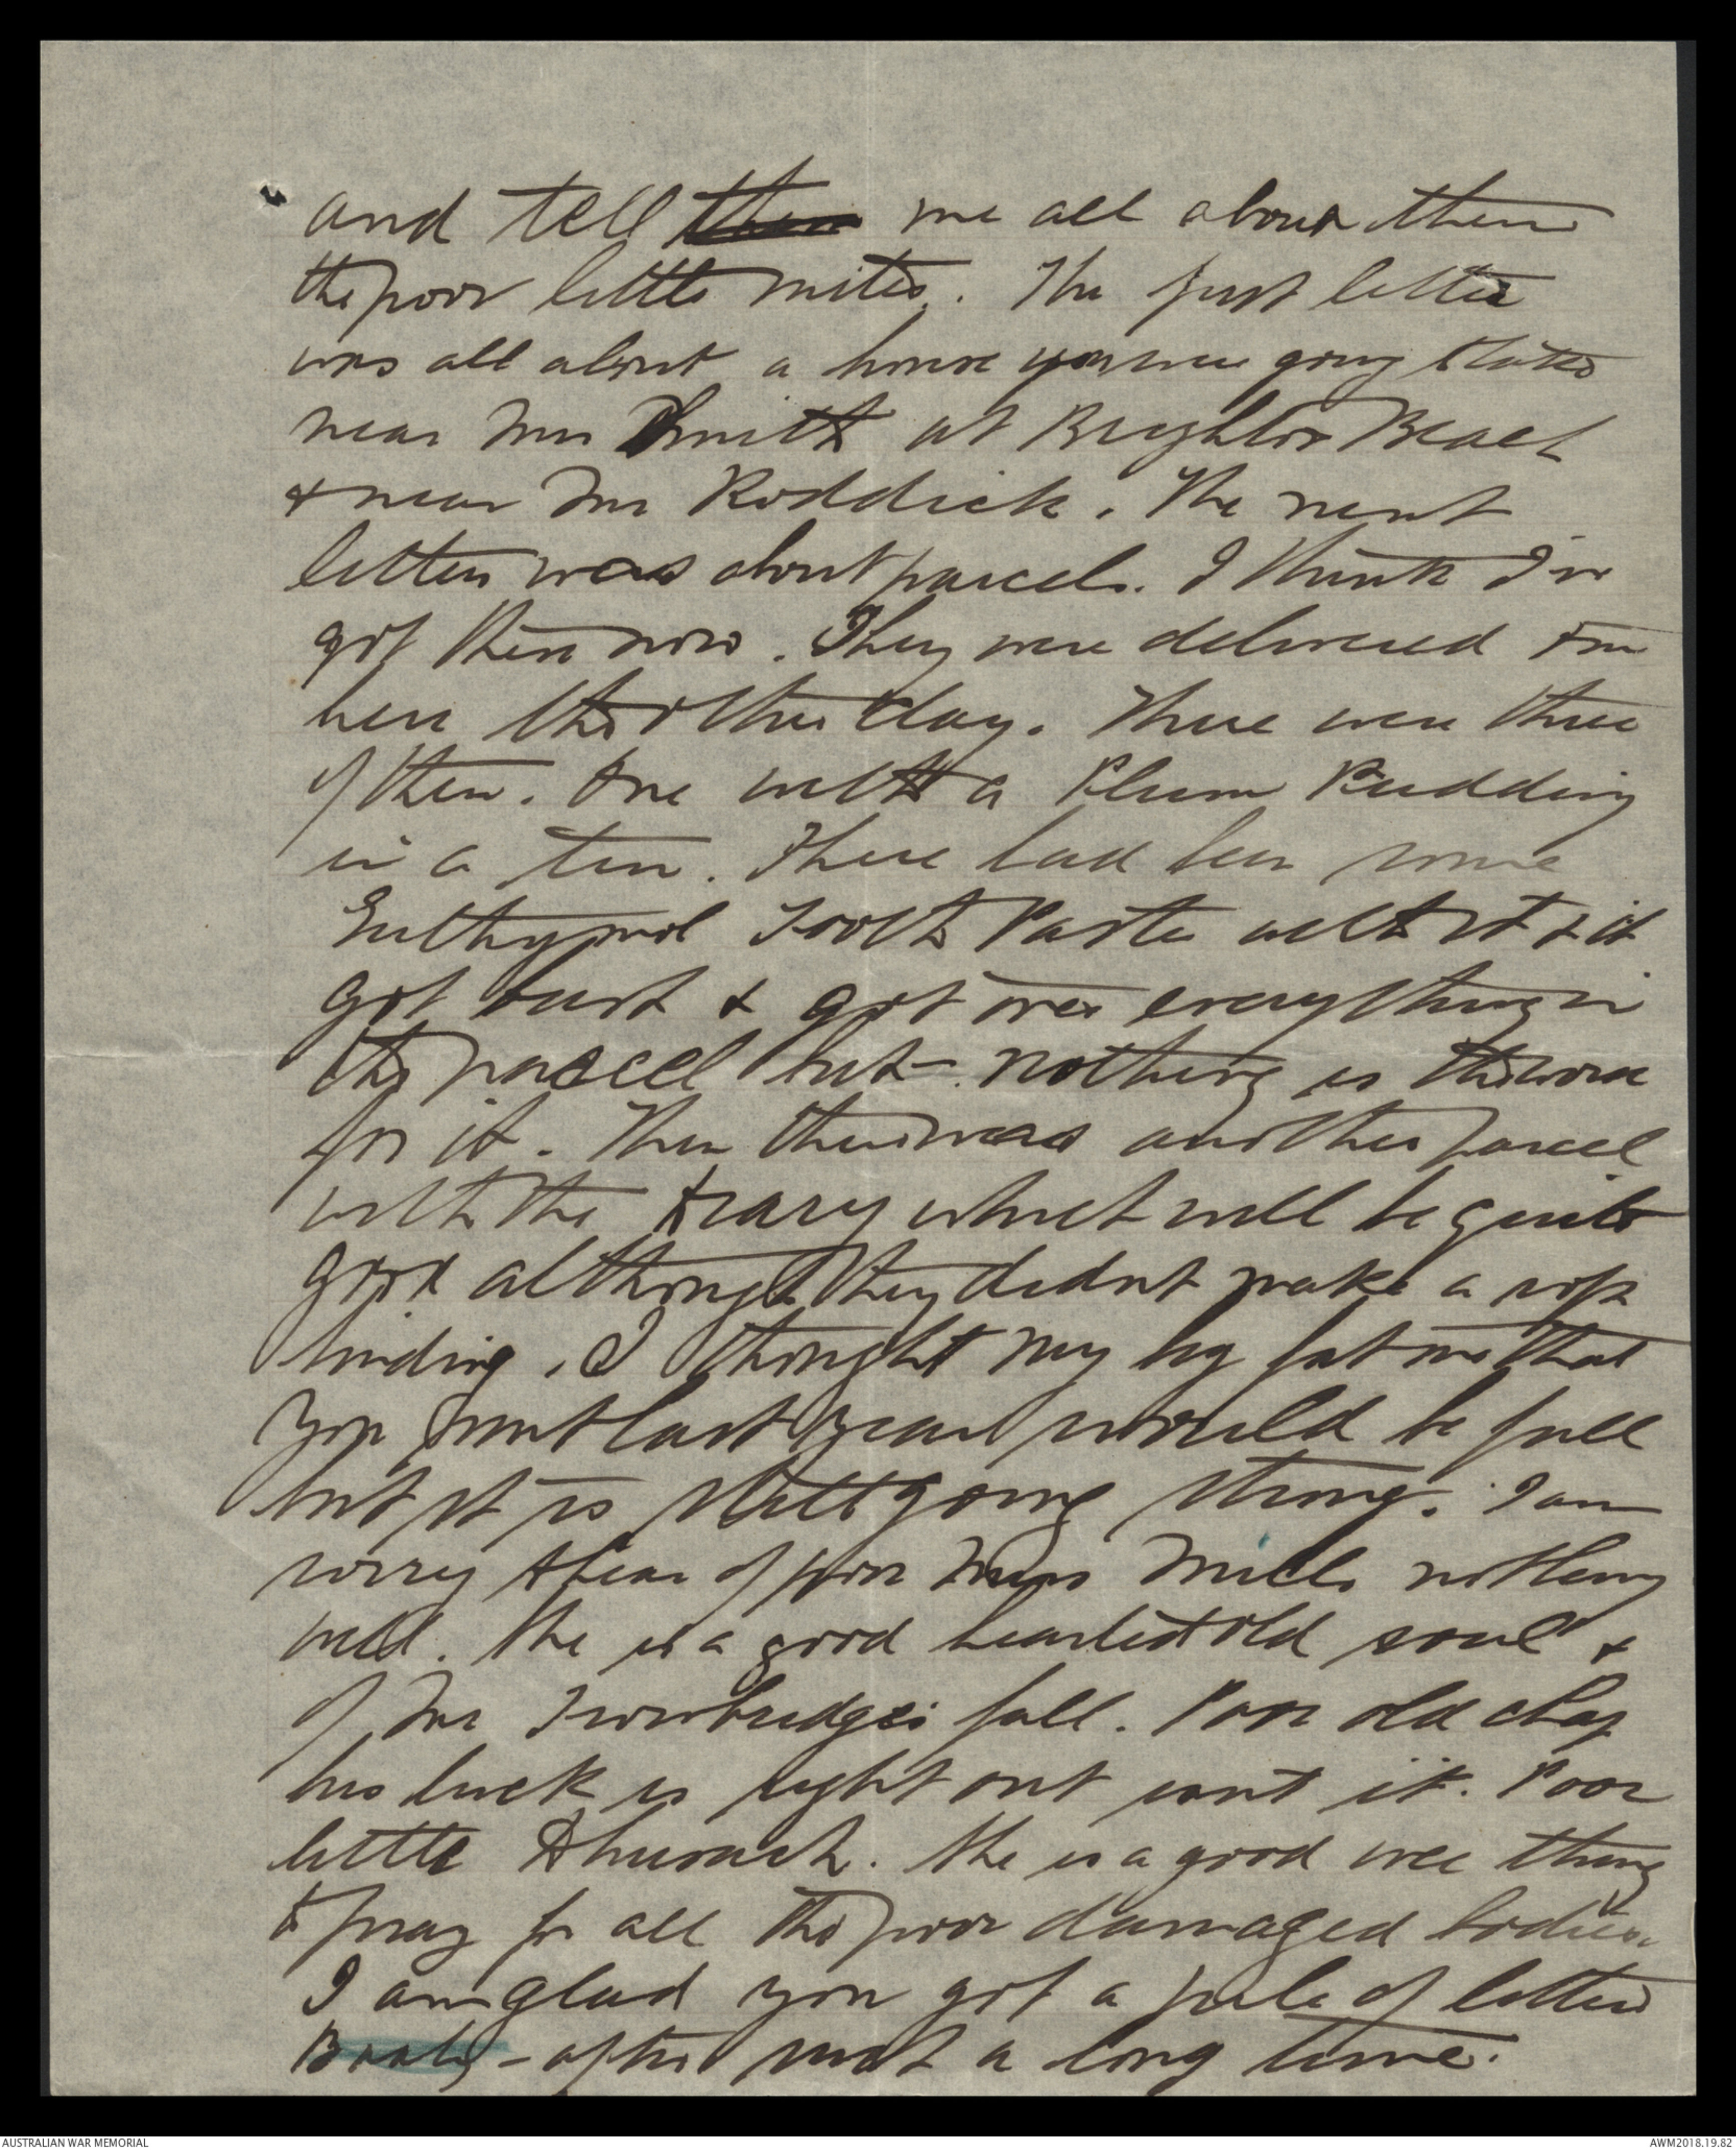 and tell them me all about them
the poor little mites. The first letter
was all about a house you were going to take
near Mrs Smith at Brighton Beach
& near Mr Roddick. The next
letter was about parcels. I think I've
got them now. They were delivered to me
here the other day. There were three
of them. One with a Plum Pudding
in a tin. There had been some
Euthymol Tooth Paste with it & it
got bust & got over everything in
the parcel but nothing is the worse
for it. Then there was another parcel
with the diary which will be quite
good although they didnt make a
binding. I thought my big fat one that
you sent last year would be full
but it is still going strong. I am
sorry to hear of poor Mills not being
well. She is a good hearted old soul &
of Mr Trowbridges fall. Poor old chap
his luck is right out isnt it. Poor
little. She is a good wee thing
to pray for all the poor damaged bodies.
I am glad you got a pile of letters
Baaby - after such a long time.
AUSTRALIAN WAR MEMORIAL
AWM2018.19.82